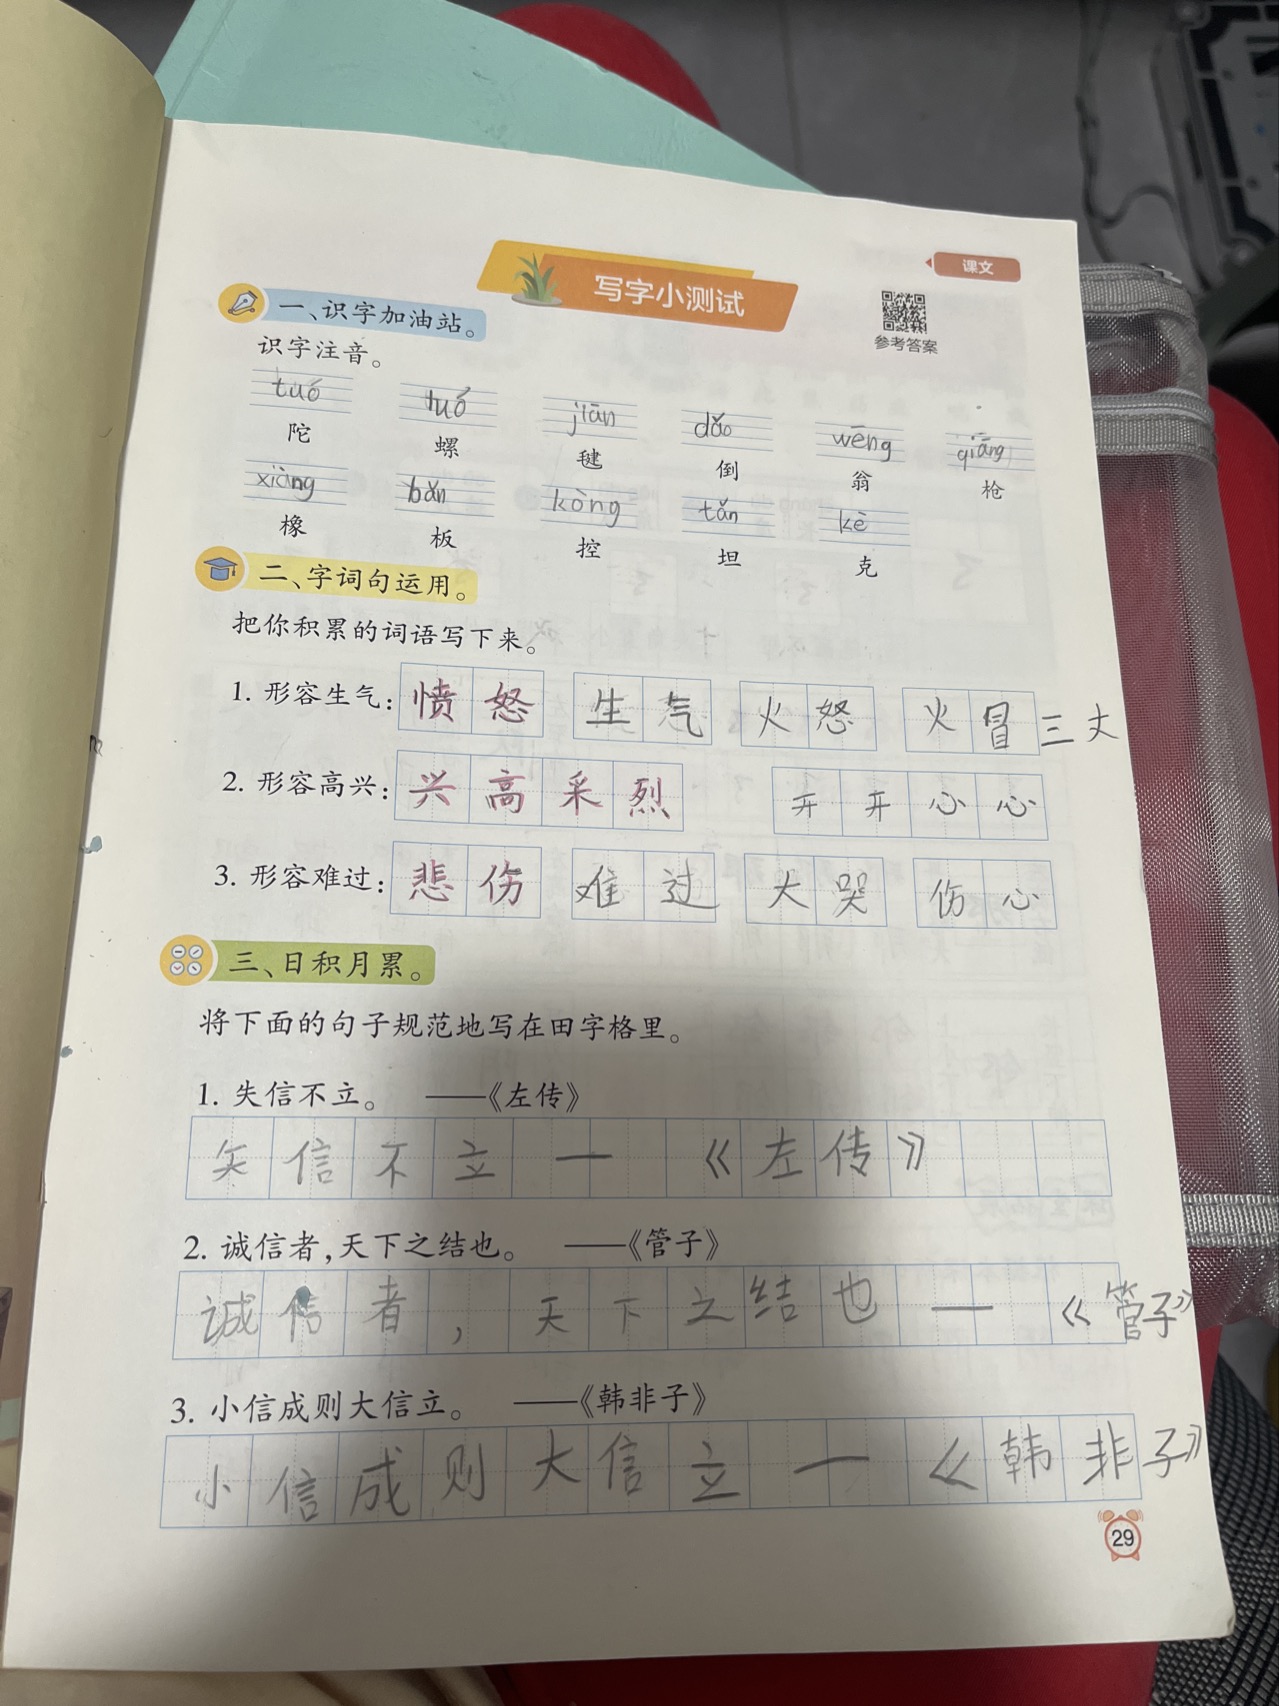 课文
写字小测试
参考答案
一、识字加油站。
识字注音。
tuó tuó jiān dǎo wēng qiāng
陀 螺 毽 倒 翁 枪
xiàng bǎn kòng tǎn kè
橡 板 控 坦 克
二、字词句运用。
把你积累的词语写下来。
1. 形容生气: 愤怒 生气 火怒 火冒三丈
2. 形容高兴: 兴高采烈 开开心心
3. 形容难过: 悲伤 难过 大哭 伤心
三、日积月累。
将下面的句子规范地写在田字格里。
1. 失信不立。 ——《左传》
失信不立—《左传》
2. 诚信者,天下之结也。 ——《管子》
诚信者,天下之结也—《管子》
3. 小信成则大信立。 ——《韩非子》
小信成则大信立—《韩非子》
29